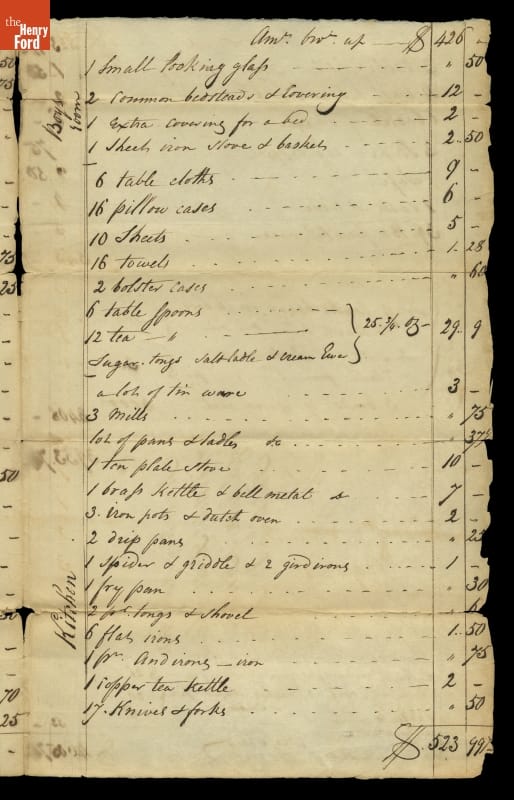 the
Henry
Ford
Amt. brot. up — $ 426 -
1 Small looking glass " 50
2 Common bedsteads & Covering 12 -
1 Extra covering for a bed 2 -
1 Sheet iron Stove & baskets 2.. 50
6 table cloths 9 -
16 pillow cases 6 -
10 Sheets 5 -
16 towels 1. 28
2 bolster cases " 60
6 table Spoons
12 tea — "
25. 3/4 oz — 29.. 9
Sugar-tongs Salt ladle & cream Ewer
a lot of tin ware 3 -
3 Mills " 75
lot of pans & ladles &c " 37
1 ten plate stove 10 -
1 brass Kettle & bell metal do 7 -
3. iron pots & dutch oven 2 -
2 drip pans " 25
1 Spider & griddle & 2 girdirons 1 -
1 fry pan " 30
2 pr. tongs & shovel
6 flat irons 1.. 50
1 pr. Andirons — iron " 75
1 Copper tea Kettle 2 -
17. Knives & forks " 50
$. 523 99
Boys Room
Kitchen
50
75
75
25
50
70
25